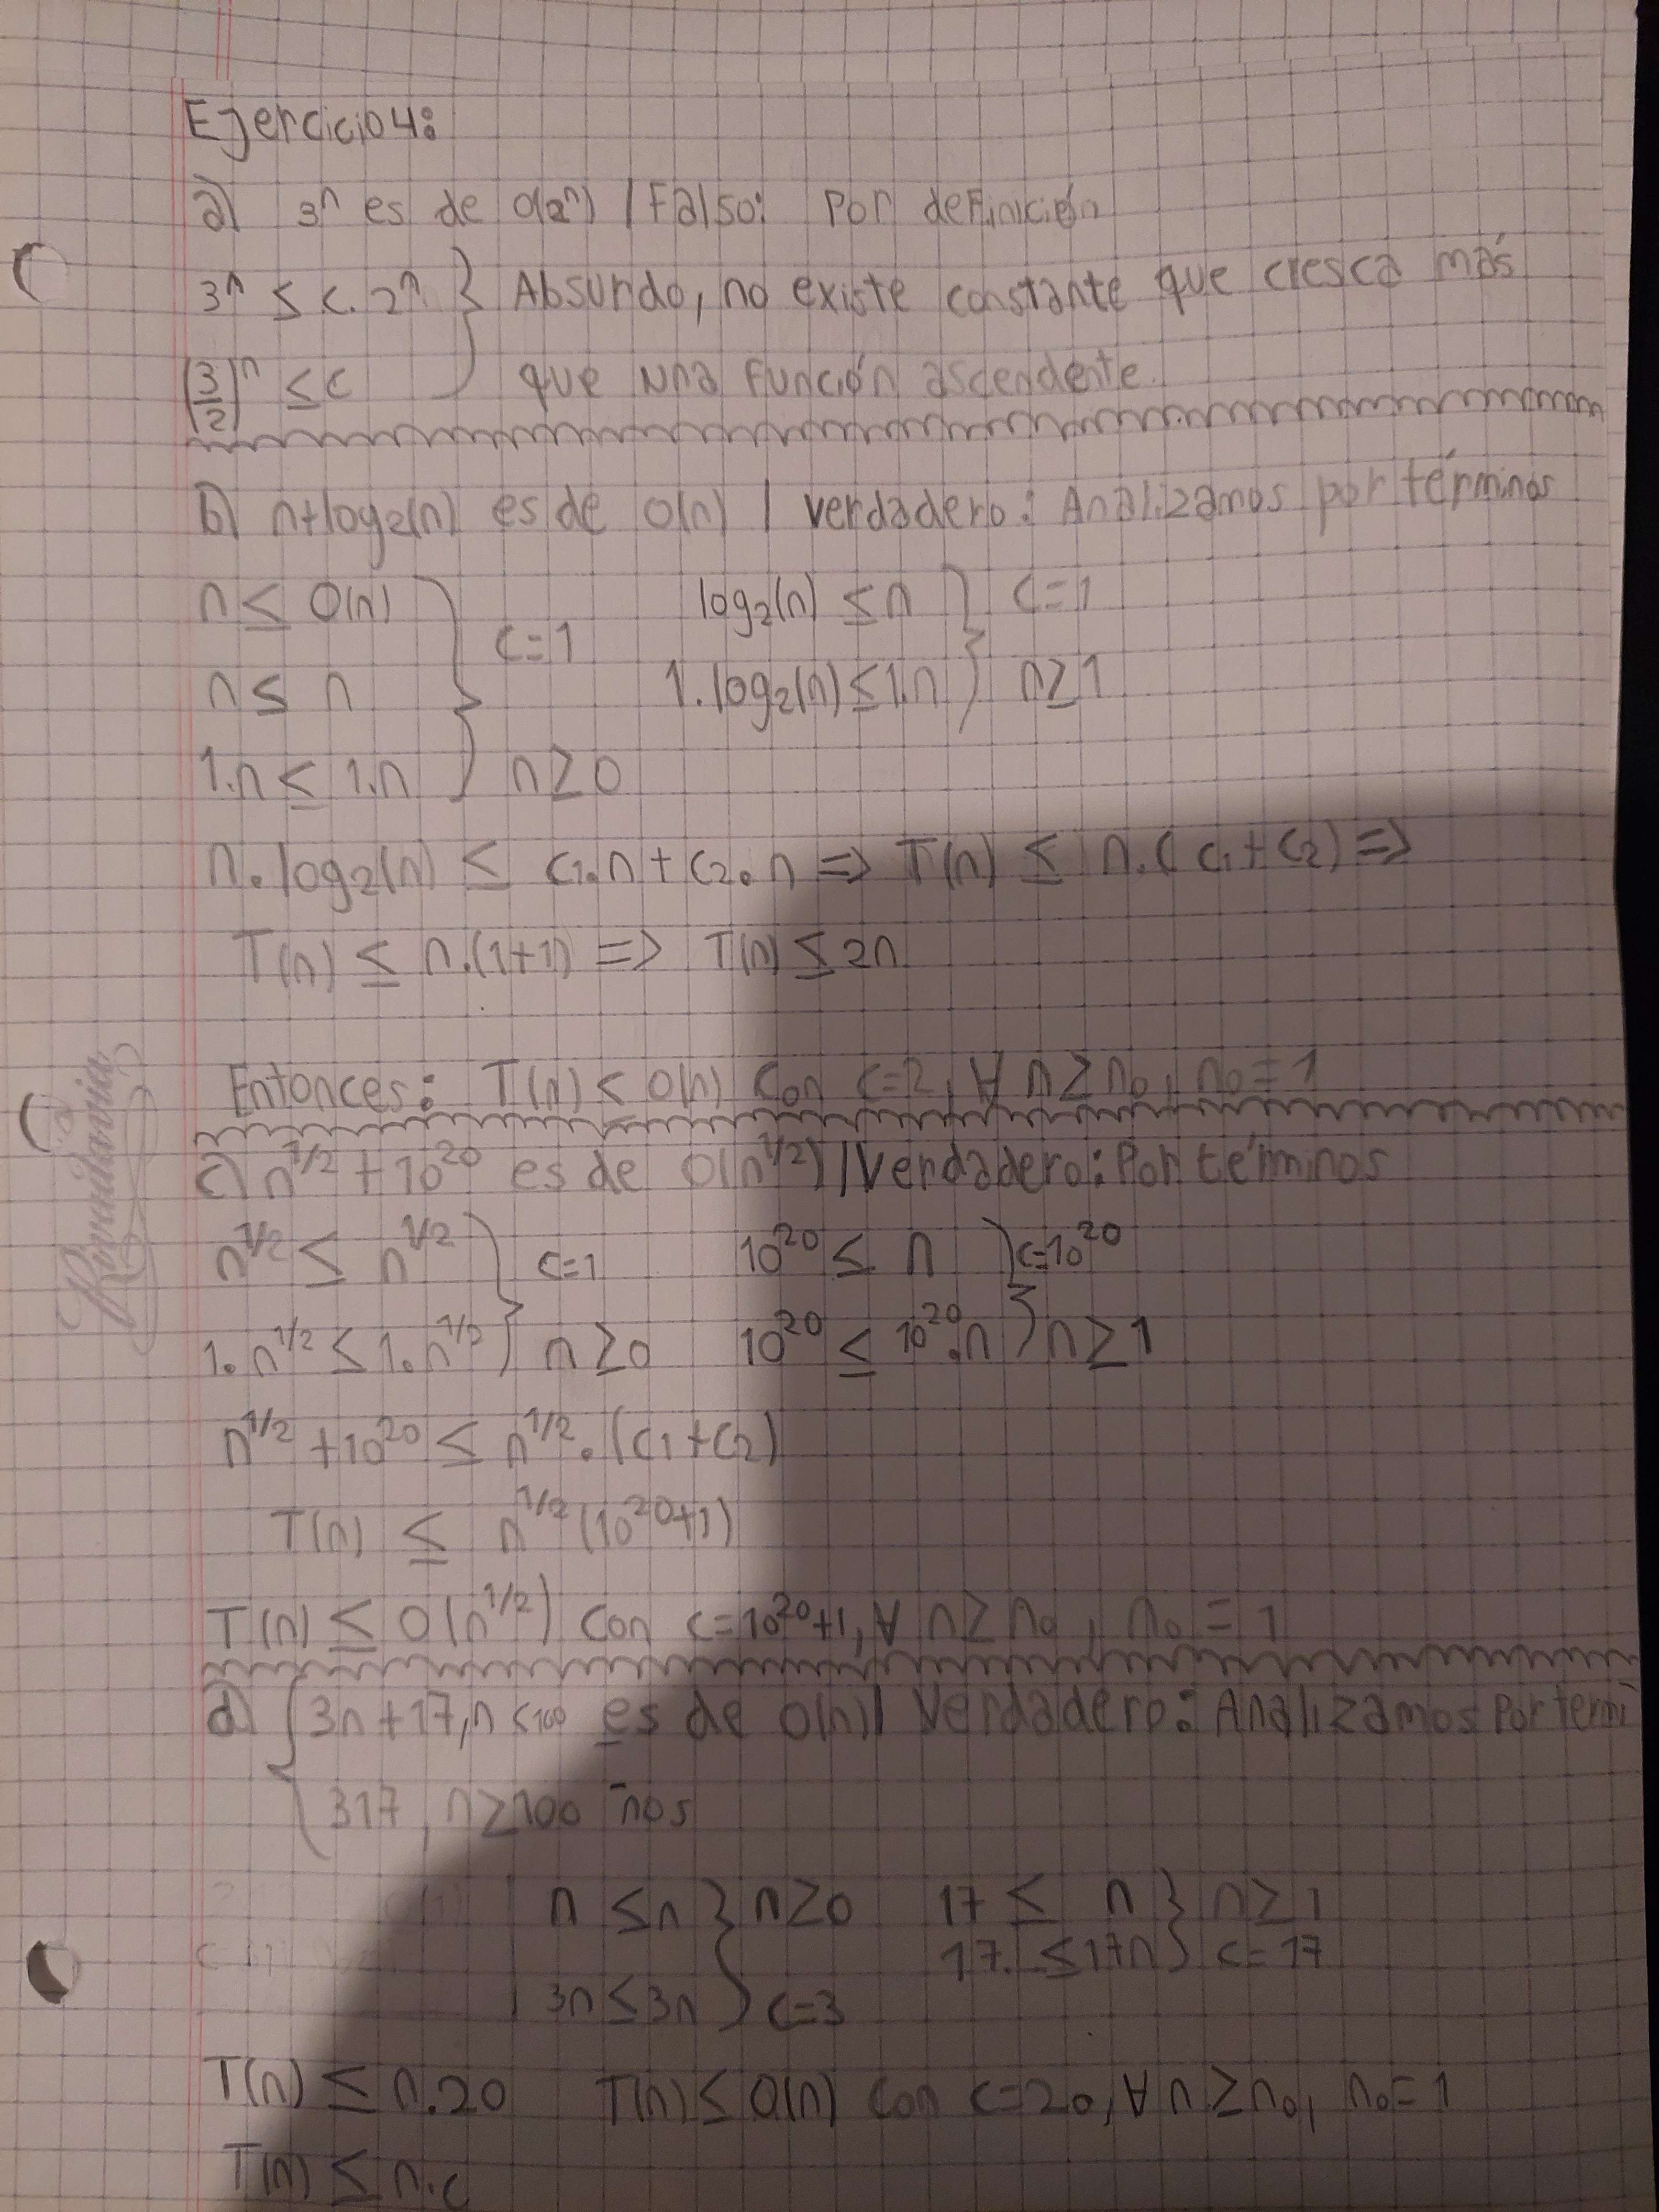 Ejercicio 4:
a) 3^n es de O(2^n) / Falso: Por definición
3^n ≤ c. 2^n } Absurdo, no existe constante que cresca más
(3/2)^n ≤ c que una función ascendente.
b) n+log₂(n) es de O(n) / Verdadero: Analizamos por términos
n ≤ O(n) log₂(n) ≤ n } c=1
n ≤ n } c=1 1.log₂(n) ≤ 1.n } n≥1
1.n ≤ 1.n } n≥0
n.log₂(n) ≤ c₁.n + c₂.n => T(n) ≤ n.(c₁+c₂) =>
T(n) ≤ n.(1+1) => T(n) ≤ 2n
Entonces: T(n) ≤ O(n) con c=2, ∀ n≥n₀, n₀=1
Rivadavia
c) n^1/2 + 10^20 es de O(n^1/2) / Verdadero: Por términos
n^1/2 ≤ n^1/2 } c=1 10^20 ≤ n } c=10^20
1.n^1/2 ≤ 1.n^1/2 } n≥0 10^20 ≤ 10^20.n } n≥1
n^1/2 + 10^20 ≤ n^1/2.(c₁+c₂)
T(n) ≤ n^1/2 (10^20+1)
T(n) ≤ O(n^1/2) con c=10^20+1, ∀ n≥n₀, n₀=1
d) { 3n+17, n<100 es de O(n) | Verdadero: Analizamos por térmi
317, n≥100 -nos
n ≤ n } n≥0 17 ≤ n } n≥1
17. ≤ 17n } c=17
3n ≤ 3n } c=3
T(n) ≤ n.20 T(n) ≤ O(n) con c=20, ∀ n≥n₀, n₀=1
T(n) ≤ n.c